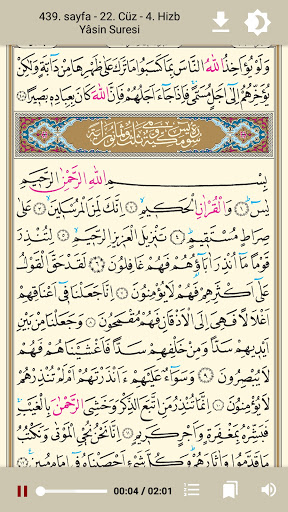 439. sayfa - 22. Cüz - 4. Hizb
Yâsin Suresi
وَلَوْ يُؤَاخِذُ اللّٰهُ النَّاسَ بِمَا كَسَبُوا مَا تَرَكَ عَلٰى ظَهْرِهَا مِنْ دَٓابَّةٍ وَلٰكِنْ
يُؤَخِّرُهُمْ اِلٰٓى اَجَلٍ مُسَمًّىۚ فَاِذَا جَٓاءَ اَجَلُهُمْ فَاِنَّ اللّٰهَ كَانَ بِعِبَادِه۪ بَص۪يرًا
بِسْمِ اللّٰهِ الرَّحْمٰنِ الرَّح۪يمِ
يٰسٓ ﴿١﴾ وَالْقُرْاٰنِ الْحَك۪يمِ ﴿٢﴾ اِنَّكَ لَمِنَ الْمُرْسَل۪ينَ ﴿٣﴾ عَلٰى
صِرَاطٍ مُسْتَق۪يمٍ ﴿٤﴾ تَنْز۪يلَ الْعَز۪يزِ الرَّح۪يمِ ﴿٥﴾ لِتُنْذِرَ
قَوْمًا مَٓا اُنْذِرَ اٰبَٓاؤُ۬هُمْ فَهُمْ غَافِلُونَ ﴿٦﴾ لَقَدْ حَقَّ الْقَوْلُ
عَلٰٓى اَكْثَرِهِمْ فَهُمْ لَا يُؤْمِنُونَ ﴿٧﴾ اِنَّا جَعَلْنَا ف۪ٓي اَعْنَاقِهِمْ
اَغْلَالًا فَهِيَ اِلَى الْاَذْقَانِ فَهُمْ مُقْمَحُونَ ﴿٨﴾ وَجَعَلْنَا مِنْ بَيْنِ
اَيْد۪يهِمْ سَدًّا وَمِنْ خَلْفِهِمْ سَدًّا فَاَغْشَيْنَاهُمْ فَهُمْ
لَا يُبْصِرُونَ ﴿٩﴾ وَسَوَٓاءٌ عَلَيْهِمْ ءَاَنْذَرْتَهُمْ اَمْ لَمْ تُنْذِرْهُمْ
لَا يُؤْمِنُونَ ﴿١٠﴾ اِنَّمَا تُنْذِرُ مَنِ اتَّبَعَ الذِّكْرَ وَخَشِيَ الرَّحْمٰنَ بِالْغَيْبِۚ
فَبَشِّرْهُ بِمَغْفِرَةٍ وَاَجْرٍ كَر۪يمٍ ﴿١١﴾ اِنَّا نَحْنُ نُحْيِ الْمَوْتٰى وَنَكْتُبُ
مَا قَدَّمُوا وَاٰثَارَهُمْۜ وَكُلَّ شَيْءٍ اَحْصَيْنَاهُ ف۪ٓي اِمَامٍ مُب۪ينٍ
00:04 / 02:01